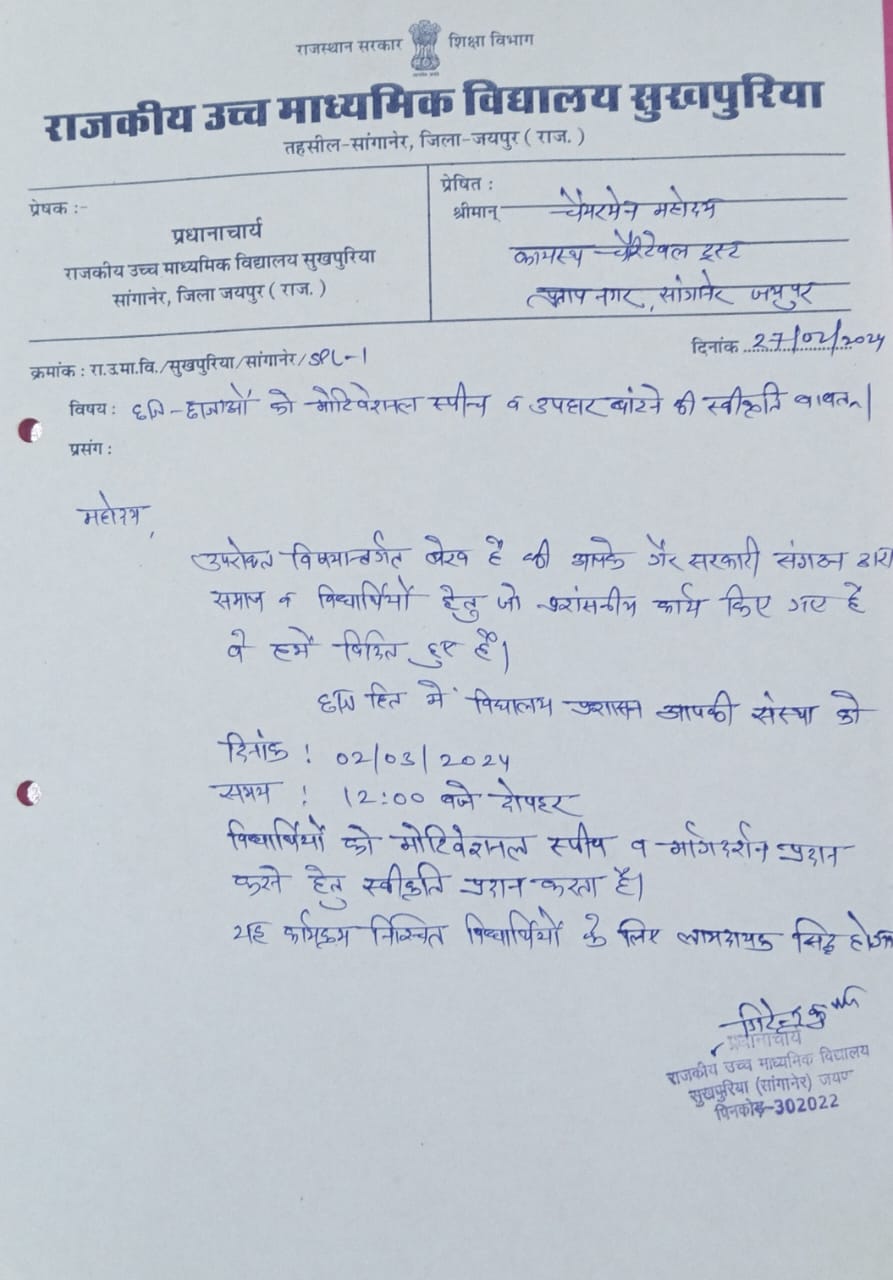 राजस्थान सरकार शिक्षा विभाग
राजकीय उच्च माध्यमिक विद्यालय सुखपुरिया
तहसील-सांगानेर, जिला-जयपुर ( राज. )
प्रेषक :-
प्रधानाचार्य
राजकीय उच्च माध्यमिक विद्यालय सुखपुरिया
सांगानेर, जिला जयपुर ( राज. )
प्रेषित :
श्रीमान् चैयरमेन महोदय
कायस्थ चैरिटेबल ट्रस्ट
प्रताप नगर, सांगानेर जयपुर
दिनांक 27/02/2024
क्रमांक : रा.उ.मा.वि./सुखपुरिया/सांगानेर/SPL-1
विषय : छात्र-छात्राओं को मोटिवेशनल स्पीच व उपहार बांटने की स्वीकृति बाबत।
प्रसंग :
महोदय,
उपरोक्त विषयान्तर्गत लेख है की आपके गैर सरकारी संगठन द्वारा
समाज व विद्यार्थियों हेतु जो प्रशंसनीय कार्य किए गए है
वे हमें विदित हुए है।
छात्र हित में विद्यालय प्रशासन आपकी संस्था को
दिनांक : 02/03/2024
समय : 12:00 बजे दोपहर
विद्यार्थियों को मोटिवेशनल स्पीच व मार्गदर्शन प्रदान
करने हेतु स्वीकृति प्रदान करता है।
यह कार्यक्रम निश्चित विद्यार्थियों के लिए लाभदायक सिद्ध होगा
प्रधानाचार्य
राजकीय उच्च माध्यमिक विद्यालय
सुखपुरिया (सांगानेर) जयपुर
पिनकोड-302022